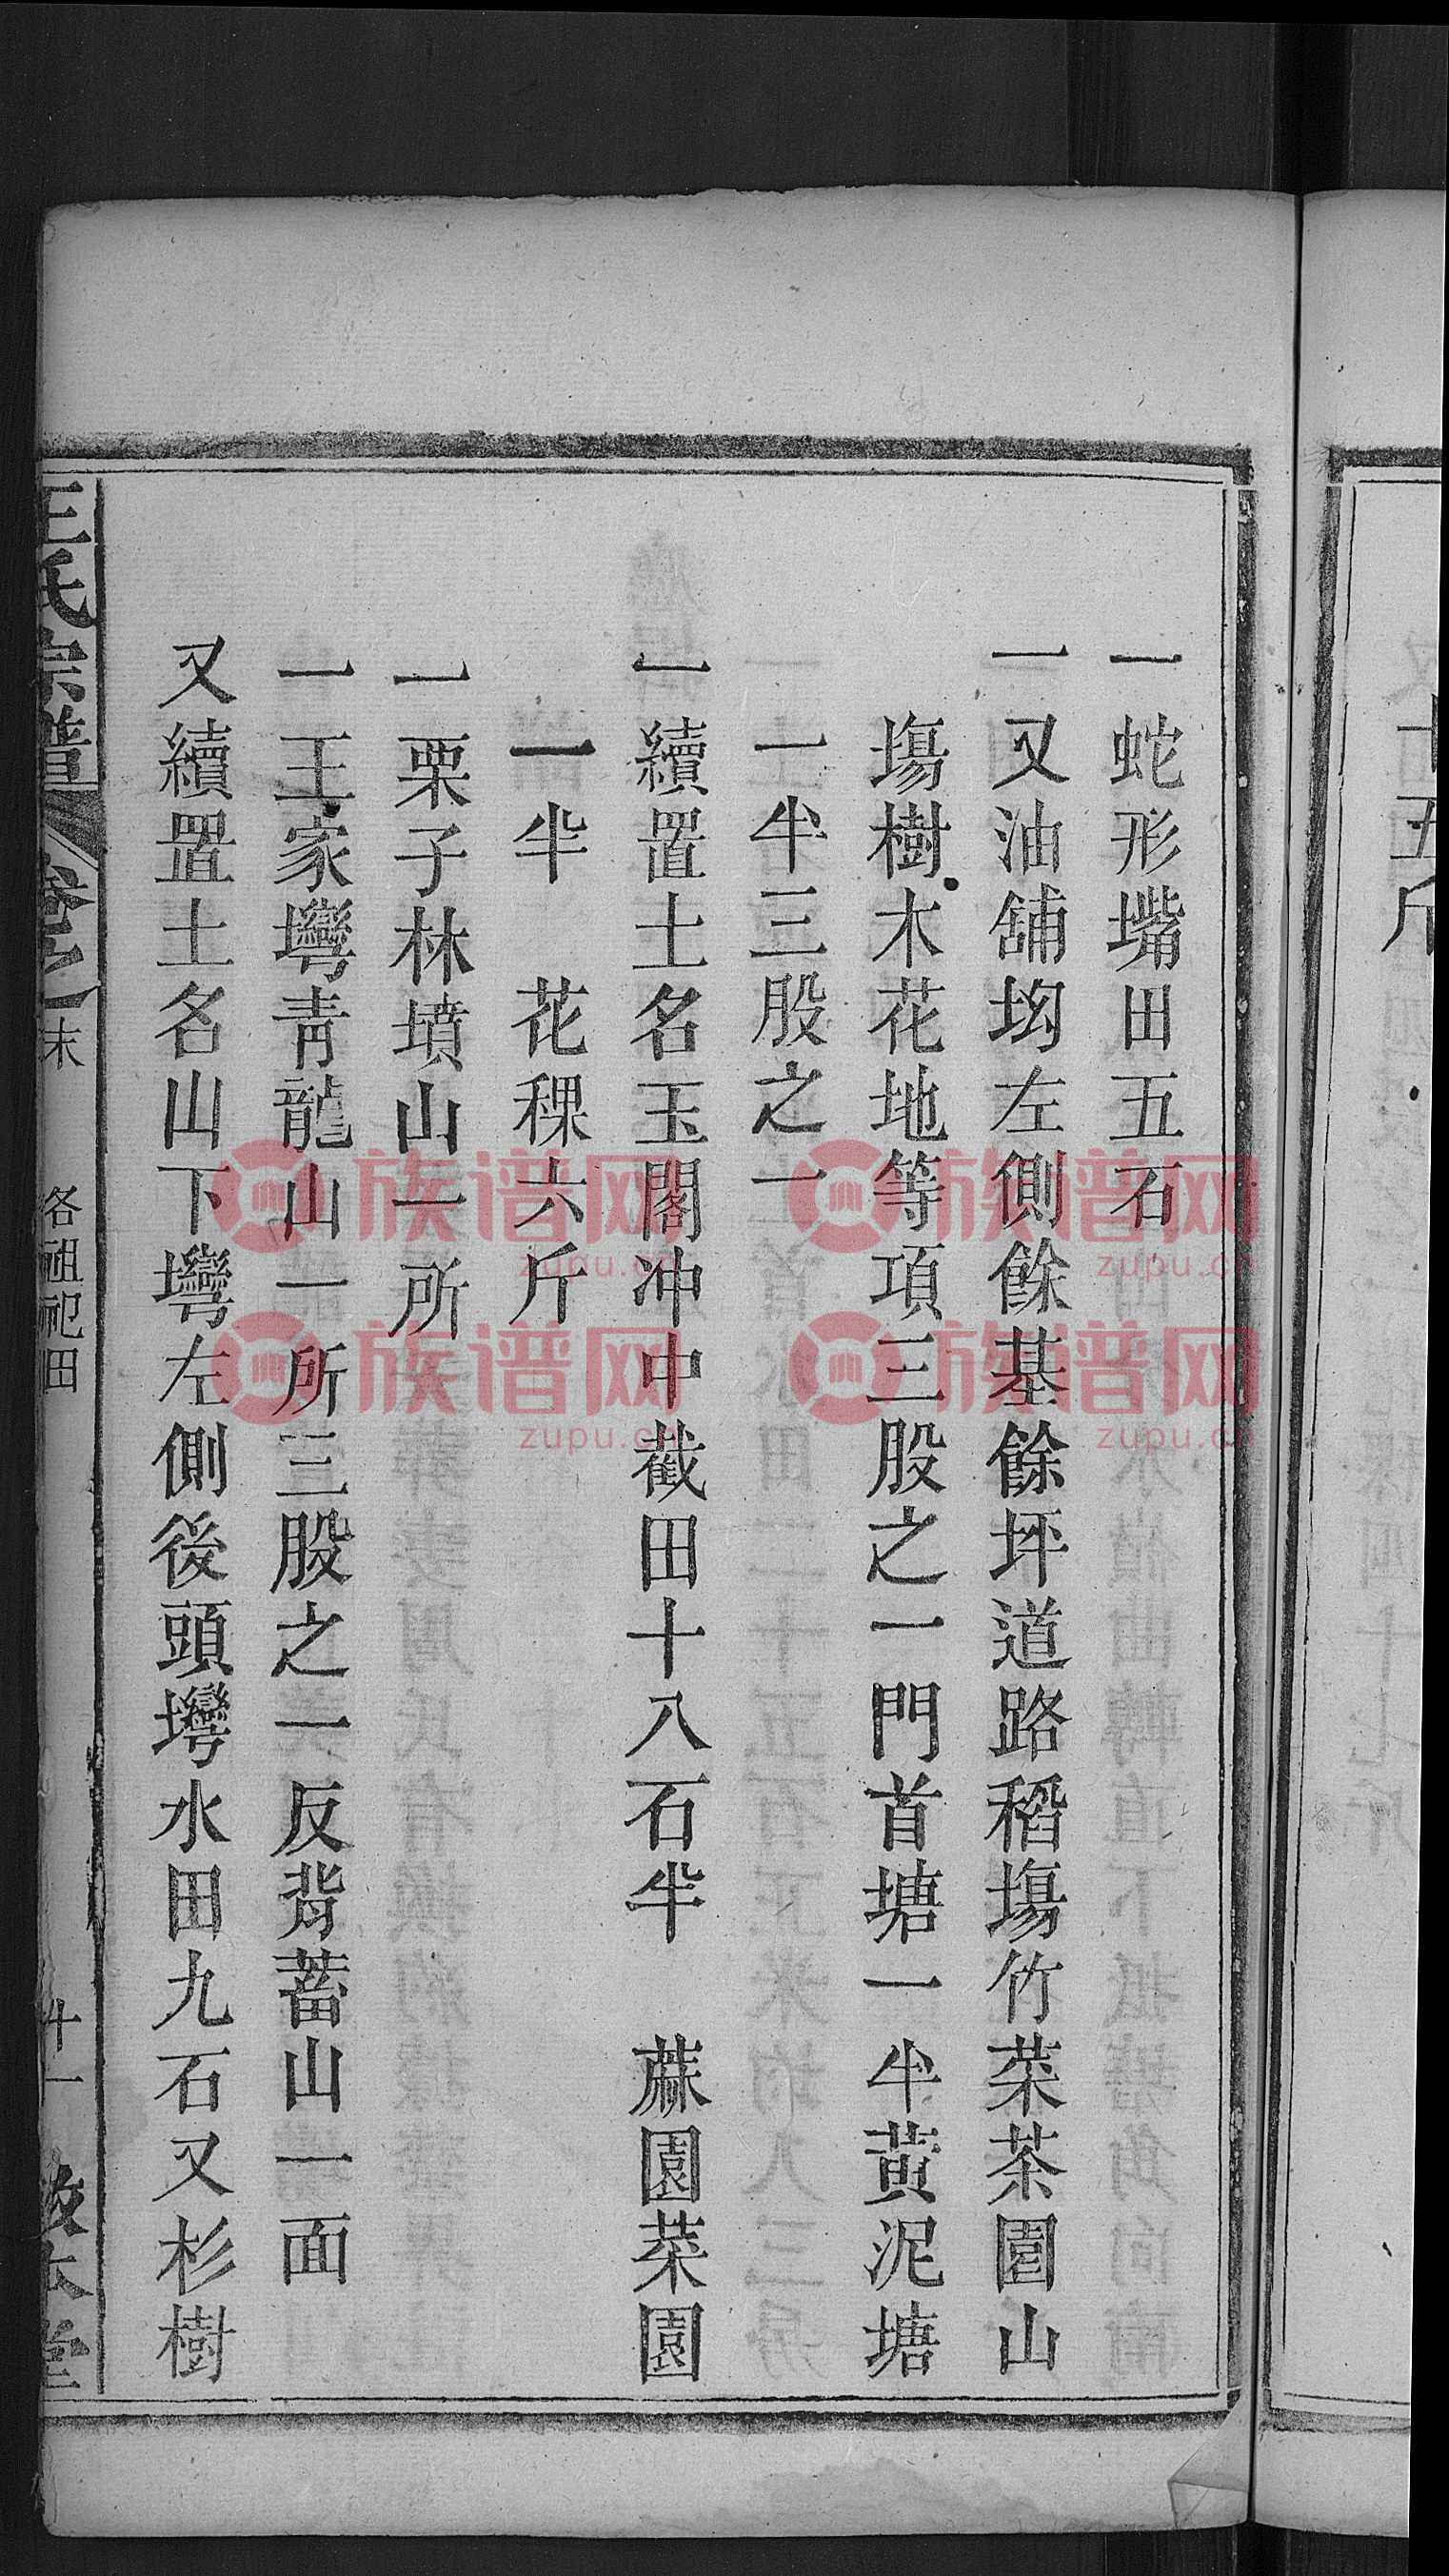 十五斤
一蛇形嘴田五石
一又油舖㘭左側餘基餘坪道路稻塲竹菜茶園山
塲樹木花地等項三股之一門首塘一半黃泥塘
一半三股之一
一續置土名玉閣冲中截田十八石半 蔴園菜園
一半 花稞六斤
一栗子林墳山一所
一王家壪青龍山一所三股之一反背蓄山一面
又續置土名山下壪左側後頭壪水田九石又杉樹
王氏宗譜 卷之 末 各祖祀田 廾一 敦本堂
族谱网
zupu.cn
族谱网
zupu.cn
族谱网
zupu.cn
族谱网
zupu.cn